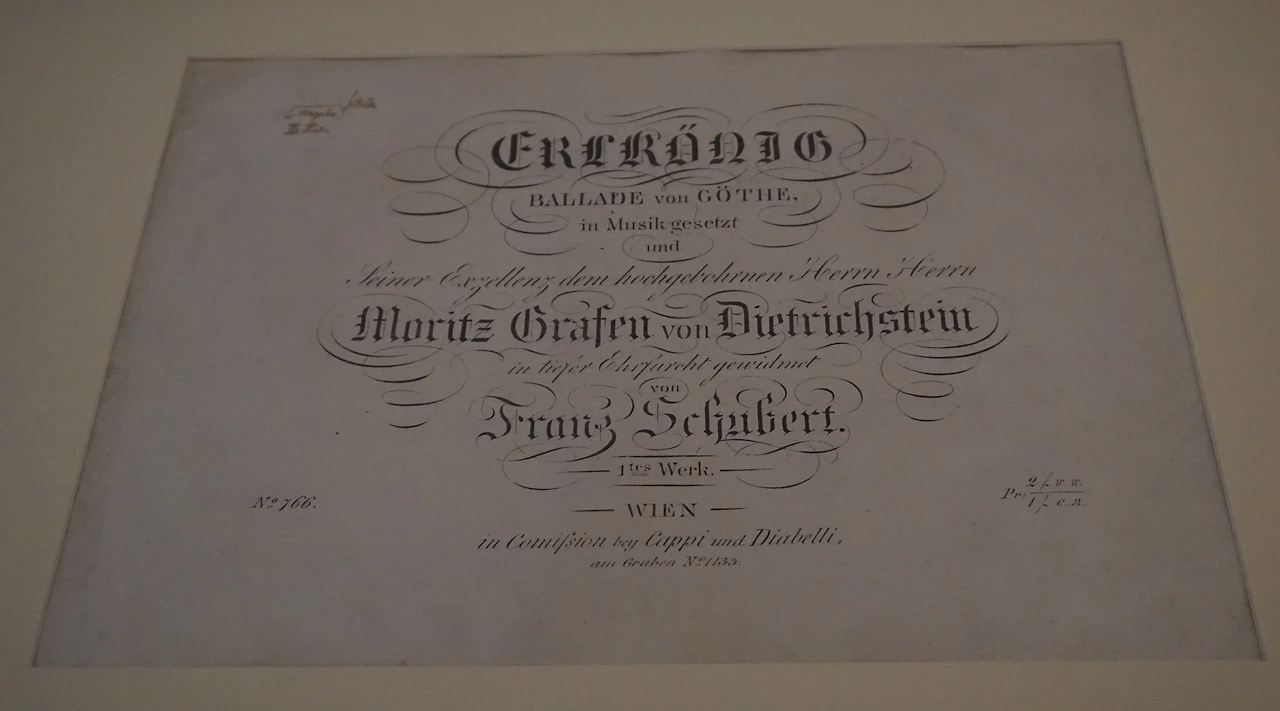 ERLKÖNIG
BALLADE von GÖTHE,
in Musik gesetzt
und
Seiner Exzellenz dem hochgebohrnen Herrn Herrn
Moritz Grafen von Dietrichstein
in tiefer Ehrfurcht gewidmet
von
Franz Schubert.
1tes Werk.
No 766.
Pr: 2 f. w. w.
1 f. C. M.
WIEN
in Comißion bey Cappi und Diabelli,
am Graben No 1133.